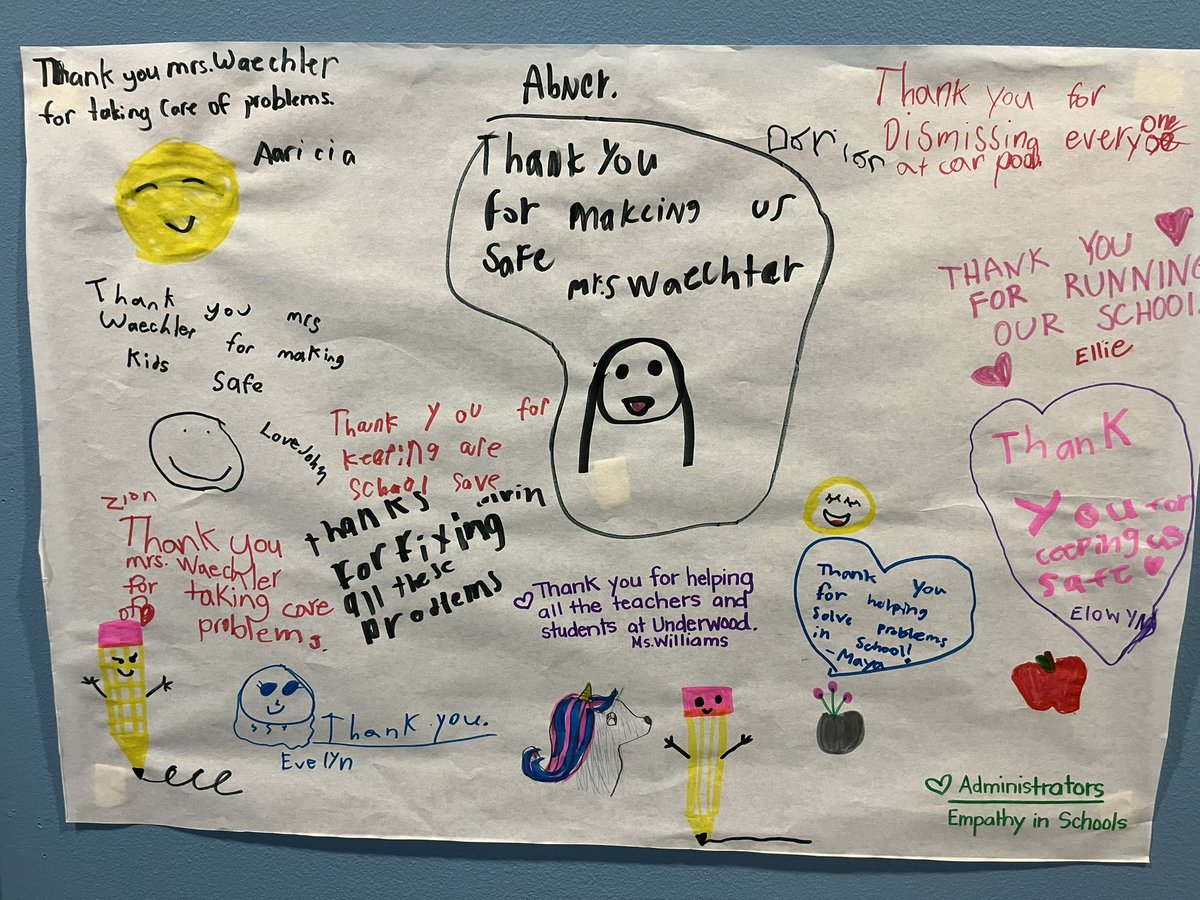 Thank you mrs. Waechler
for taking care of problems.
Aaricia
Abner.
Thank You
for makeing us
safe
mrs Waechter
Dorion
Thank you for
Dismissing everyone
at car pool.
THANK YOU
FOR RUNNING
OUR SCHOOL.
Ellie
Thank you mrs
Waechler for making
Kids safe
Love John
Thank you for
keeping are
school save
Zion
Thank you
mrs. Waechler
for taking care
of problems.
thanks
for fixing
all these
problems
Thank you for helping
all the teachers and
students at Underwood.
Ms. Williams
Thank you
for helping
solve problems
in school!
-Maya
Thank
You for
ceeping us
safe
Elowyn
Thank you.
Evelyn
Administrators
Empathy in Schools